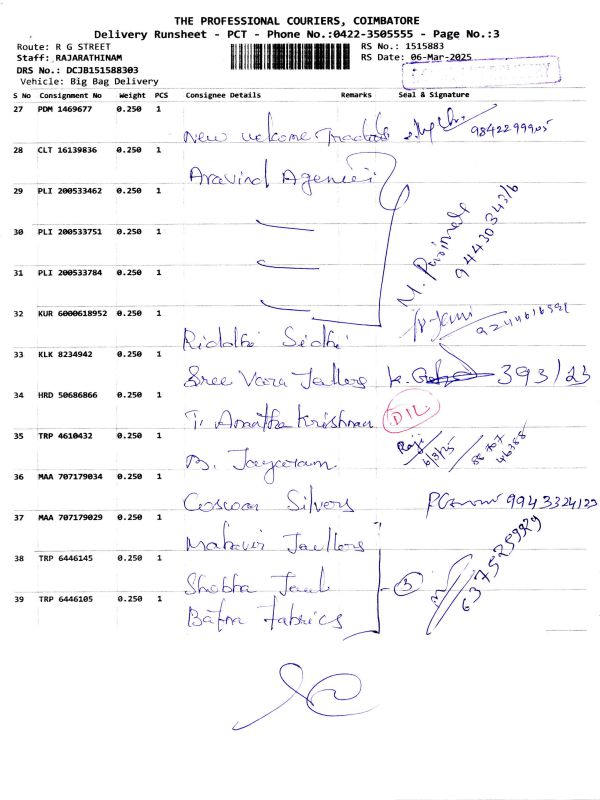 THE PROFESSIONAL COURIERS, COIMBATORE
Delivery Runsheet - PCT - Phone No.:0422-3505555 - Page No.:3
Route: R G STREET
RS No.: 1515883
Staff: RAJARATHINAM
RS Date: 06-Mar-2025
DRS No.: DCJB151588303
Vehicle: Big Bag Delivery
S No Consignment No Weight PCS Consignee Details Remarks Seal & Signature
27 PDM 1469677 0.250 1
New Welcome Traders
28 CLT 16139836 0.250 1
Aravind Agencies
29 PLI 200533462 0.250 1
30 PLI 200533751 0.250 1
M. Parimala
9443034316
31 PLI 200533784 0.250 1
32 KUR 6000618952 0.250 1
Riddhi Sidhi
33 KLK 8234942 0.250 1
Sree Vara Jellers K. 393/23
34 HRD 50686866 0.250 1
T. Anantha Krishnan DIL
35 TRP 4610432 0.250 1
B. Jayaram Raji 6/3/25
36 MAA 707179034 0.250 1
Silvers 9943324123
37 MAA 707179029 0.250 1
Mahavir Jewllers
38 TRP 6446145 0.250 1
Shobha 3 6375259929
39 TRP 6446105 0.250 1
Bafna Fabrics